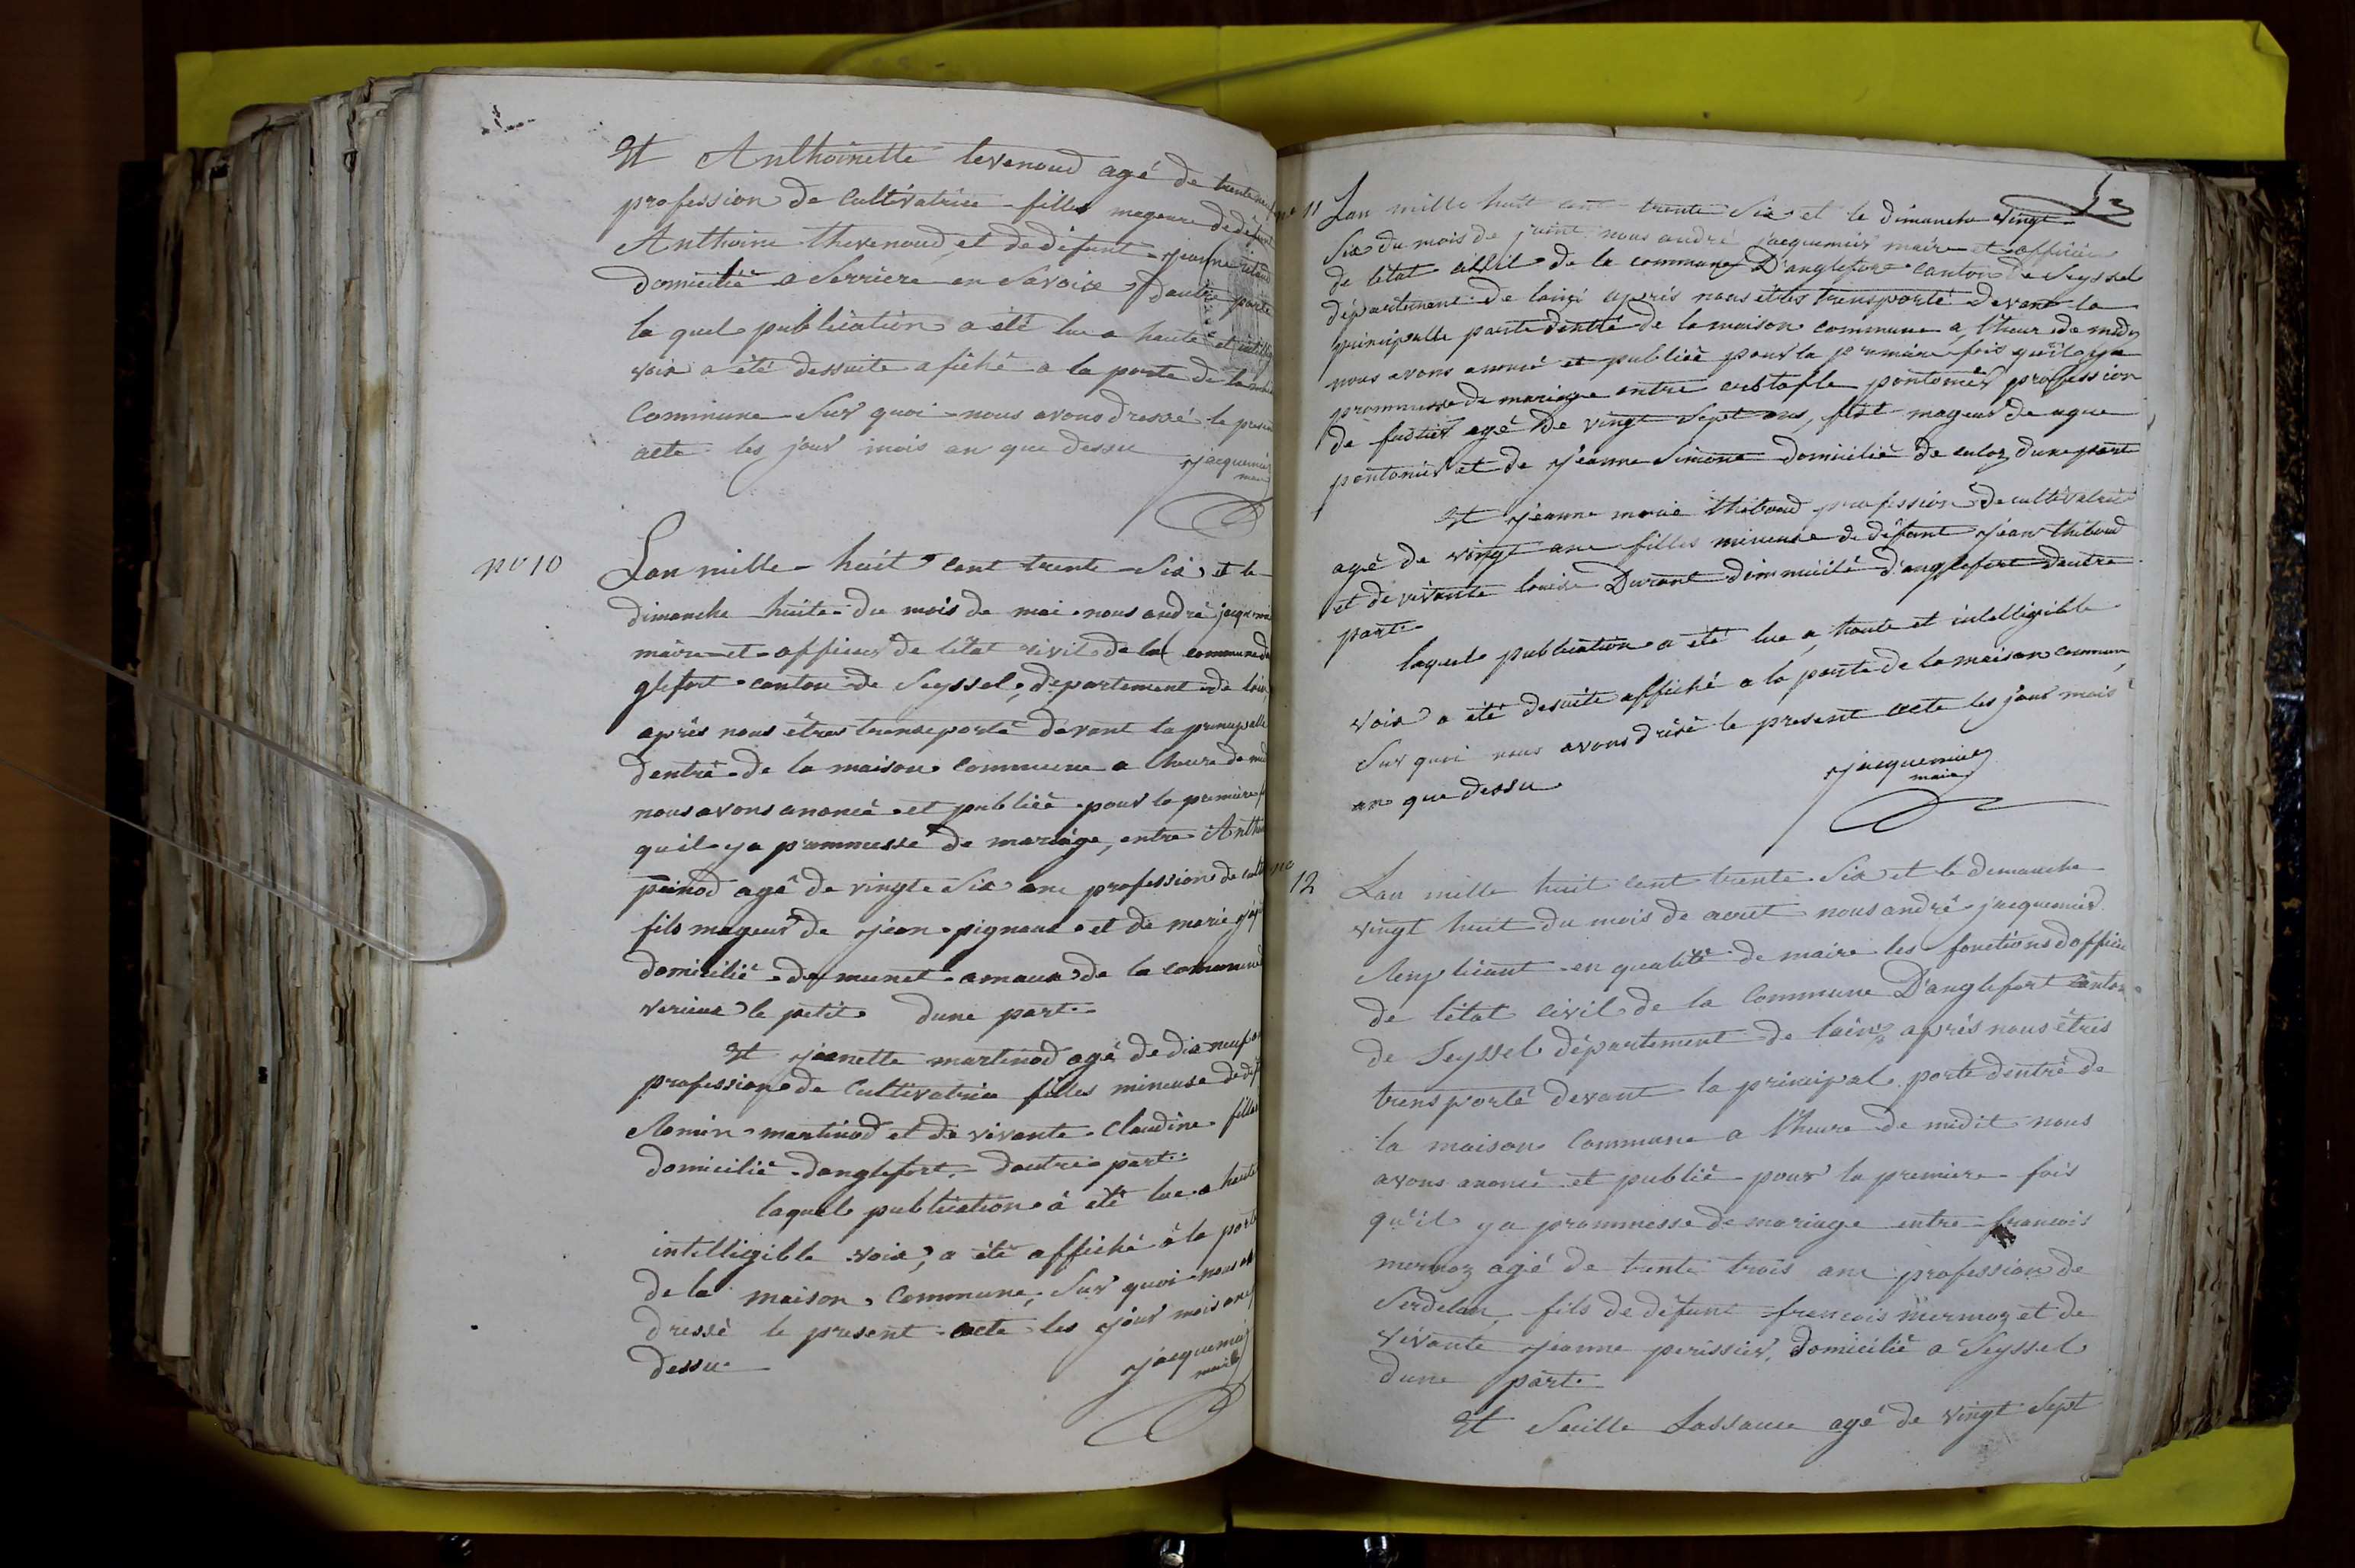 Et Anthoinette tevenoud agé de trente
profession de Cultivatrice filles mageure de défunt
Anthoine thevenoud, et de défunt jeanne
domicilié a Serriere en Savoie dautre parte
la quel publication a été lue a haute et intellig
voix a été dessuite afiché a la porte de la
Commune Sur quoi nous avons dressé le presen
acte les jour mois an que dessu
jacquemier
maire
no 10
Lan mille huit cent trente Six et le
dimanche huite du mois de mai nous andré jacquemie
maire et officier de létat civil de la commune da
glefort canton de Seyssel, département de lain,
après nous êtres transeporté devant la principalle
dentré de la maison commune a lheure de mid
nous avons anoncé et publiée pour la première f
quil ya prommesse de mariage, entre Antho
painod agé de vingte Six ans profession de culti
fils mageur de jean pignaud et de marie
domicilié de munet amaux de la commune
verieux le petit dune part
Et jeanette martinod agé de dix neuf an
profession de Cultivatrice filles mineuse de déf
Romin martinod et de vivante Claudine filles
domicilié danglefort dautre part
laquel publication à été lue a haute
intelligible voix, a été affiché à la porte
de la maison Commune, Sur quoi nous av
dressé le present acte les jour mois an q
dessu
jacquemie
maire
no 11
Lan mille huit cent trente Six et le dimanche vingt
Six du mois de juint nous andré jacquemier maire et officier
de létat civil de la commune D'anglefort canton de Seyssel
département de lain après nous êtres transporté devant la
principalle porte dentré de la maison commune a, lheur de midy
nous avons anoncé et publiée pour la première fois quil ya
prommesse de mariage entre cristofle pontonier profession
de agé de vingt Sept ans, fils mageur de ague
pontonier et de jeanne Simone domicilié de culoz dune part
Et jeanne marie thiboud profession de cultivatrice
agé de vingt ans filles mineuse de défunt jean thiboud
et de vivante louise Durant dommicilé d'anglefort dautre
part
laquel publication a été lue a haute et intelligible
voix a été desuite affiché a la porte de la maison commun,
Sur quoi nous avons drésé le present acte les jour mois
an que dessu
jacquemier
maire
no 12
Lan mille huit cent trente Six et le demanche
vingt huit du mois de aout nous andré jacquemier
Remplicant en qualité de maire les fonctions doffici
de létat civil de la Commune D'anglefort canton
de Seyssel département de lain, après nous êtres
transporté devant la principal porte dentré de
la maison Commune a l'heure de midit nous
avons anoncé et publié pour la premiere fois
qu'il ya prommesse de mariage entre francois
mermoz agé de trente trois ans profession de
Serdelan, fils de défunt francois mermoz et de
vivante jeanne perissier, domicilié a Seyssel
dune part
Et Seuille Lassauce agé de vingt Sept